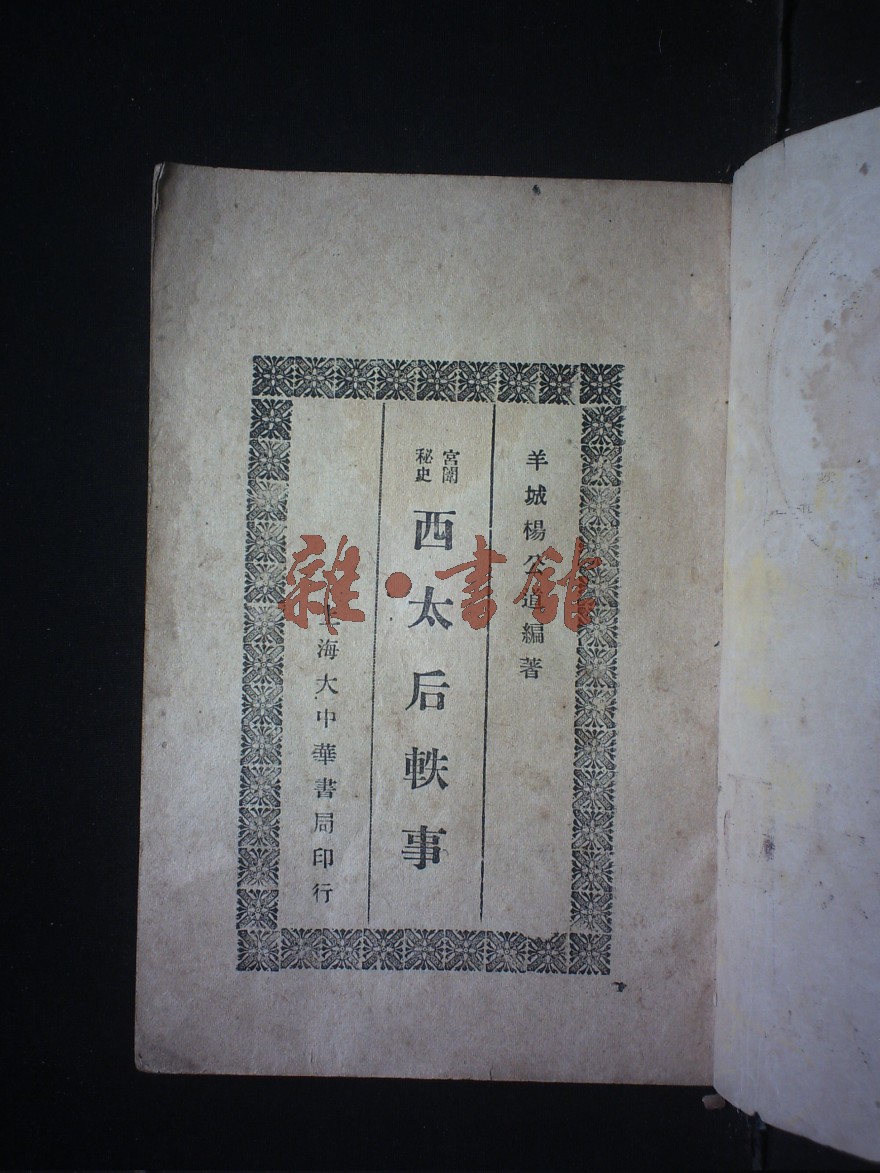 羊城楊公道編著
宮闈
秘史
西太后軼事
上海大中華書局印行
雜·書館